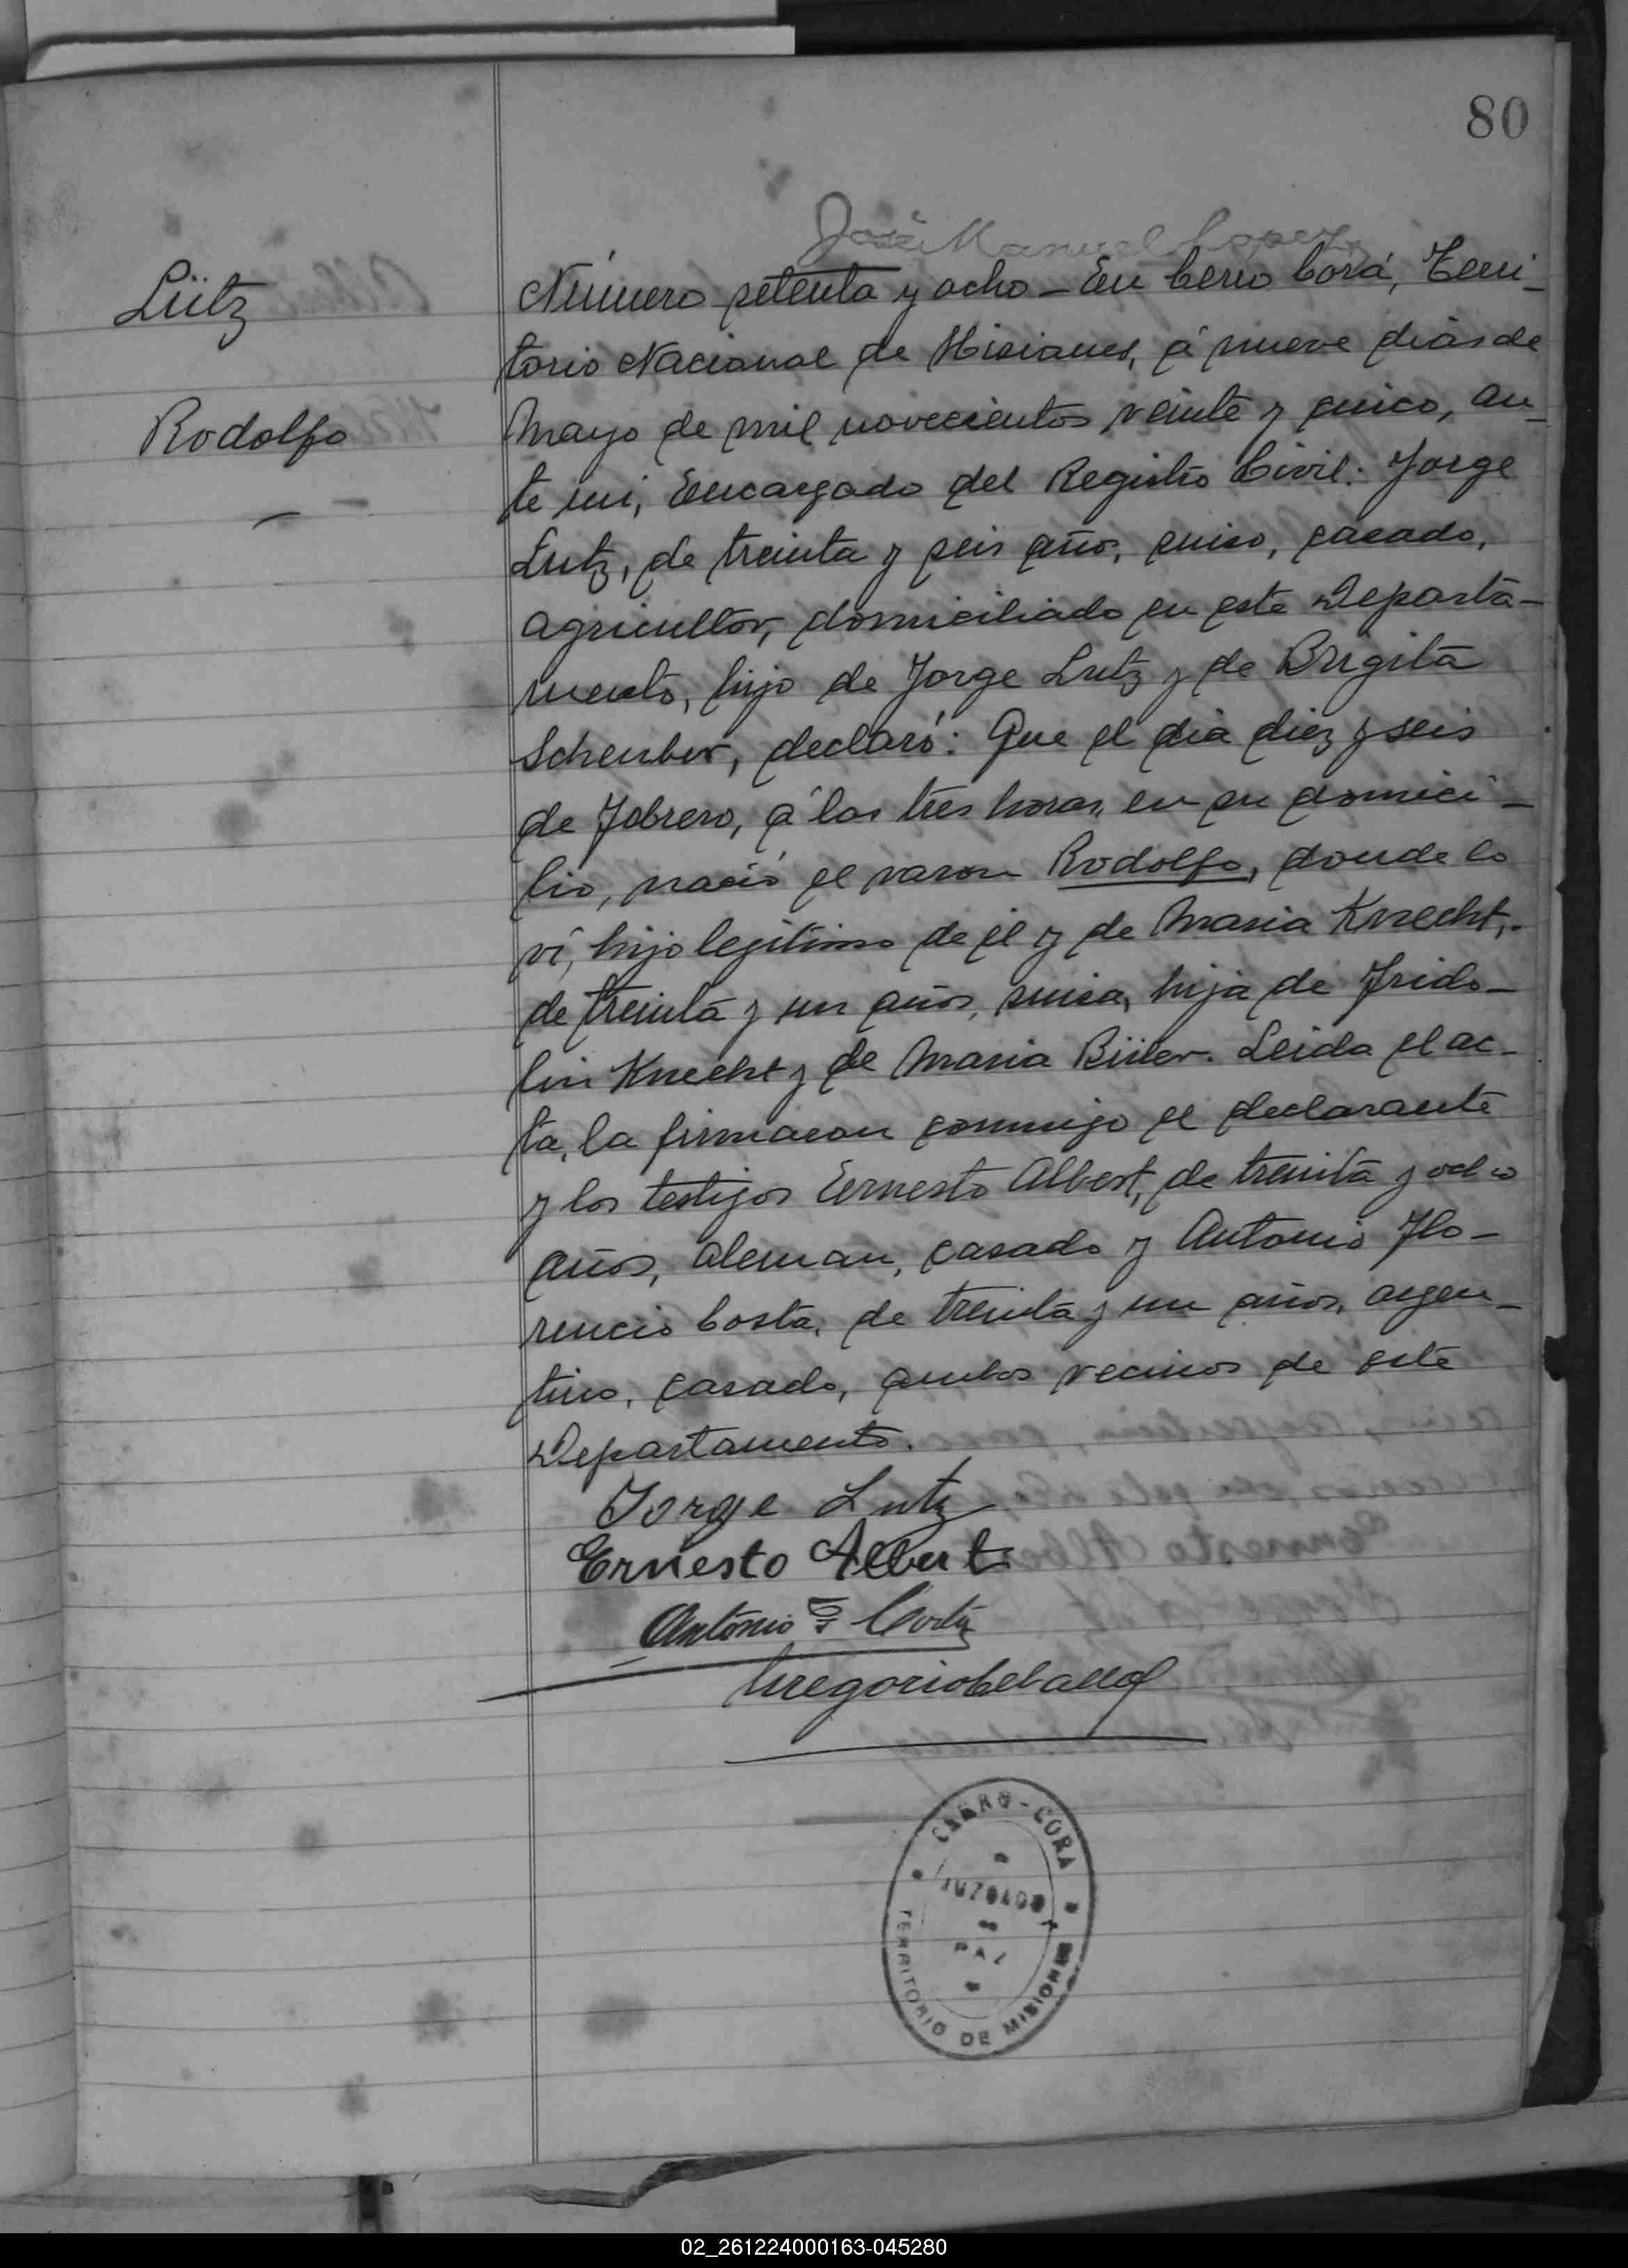 80
José Manuel Lopez
Lütz
Rodolfo
Número setenta y ocho - En Cerro Corá, Terri-
torio Nacional de Misiones, á nueve dias de
Mayo de mil novecientos veinte y cinco, an-
te mi, Encargado del Registro Civil: Jorge
Lutz, de treinta y seis años, suizo, casado,
agricultor, domiciliado en este Departa-
mento, hijo de Jorge Lutz y de Brigita
Scheuber, declaró: Que el dia diez y seis
de Febrero, á las tres horas, en su domici-
lio, nació el varon Rodolfo, donde lo
ví, hijo legítimo de él y de Maria Knecht,
de treinta y un años, suiza, hija de Frido-
lin Knecht y de Maria Büler. Leida el ac-
ta, la firmaron conmigo el declarante
y los testigos Ernesto Albert, de treinta y ocho
años, aleman, casado y Antonio Flo-
rencio Costa, de treinta y un años, argen-
tino, casado, ambos vecinos de este
Departamento.
Jorge Lutz
Ernesto Albert
Antonio F Costa
Gregorio Ceballos
CERRO-CORA
JUZGADO
PAZ
TERRITORIO DE MISIONES
02_261224000163-045280